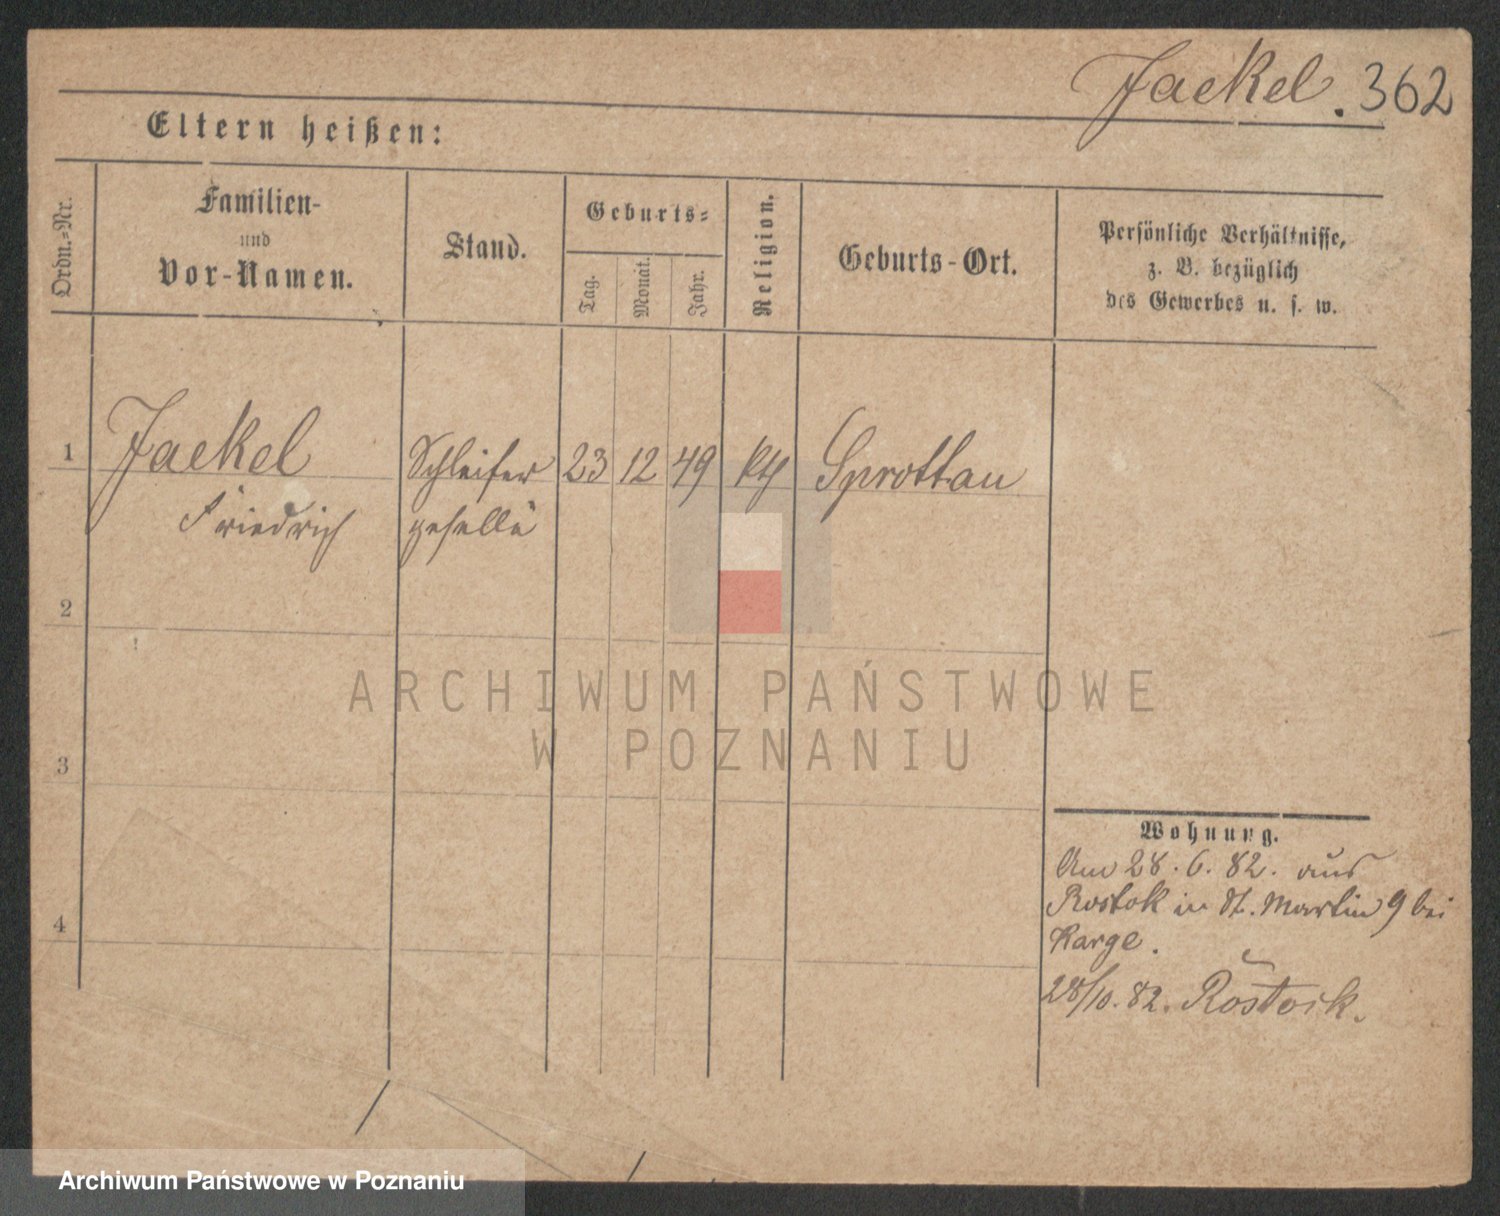 Jaekel. 362
Eltern heißen:
Ordn.-Nr.
Familien-
und
Vor-Namen.
Stand.
Geburts-
Tag.
Monat.
Jahr.
Religion.
Geburts-Ort.
Persönliche Verhältnisse,
z. B. bezüglich
des Gewerbes u. s. w.
1 Jaekel Schleifer 23 12 49 kth Sprottau
Friedrich geselle
2
3
4
ARCHIWUM PAŃSTWOWE
W POZNANIU
Wohnung.
Am 28. 6. 82. aus
Rostok in St. Martin 9 bei
Karge.
28/10. 82. Rostock.
Archiwum Państwowe w Poznaniu